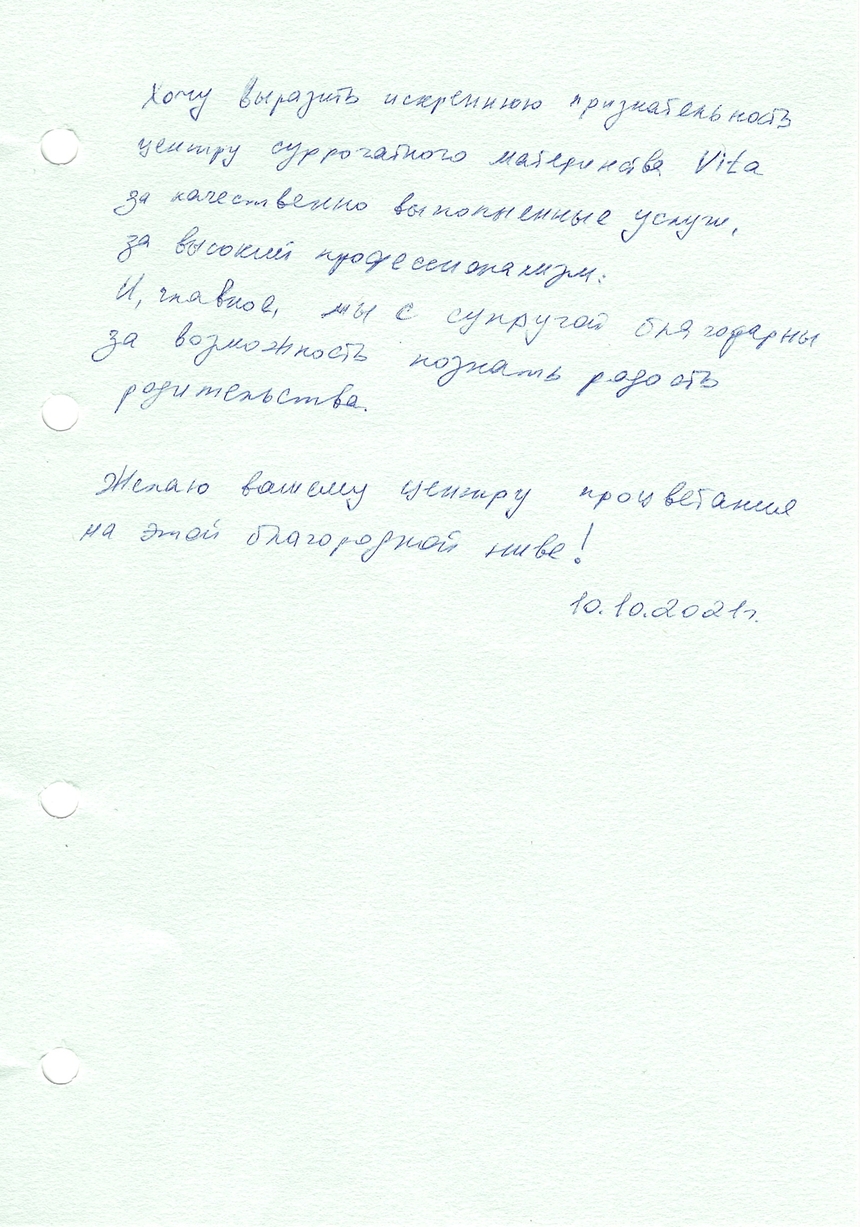 Хочу выразить искреннюю признательность
центру суррогатного материнства Vita
за качественно выполненные услуги,
за высокий профессионализм.
И, главное, мы с супругой благодарны
за возможность познать радость
родительства.
Желаю вашему центру процветания
на этой благородной ниве!
10.10.2021г.